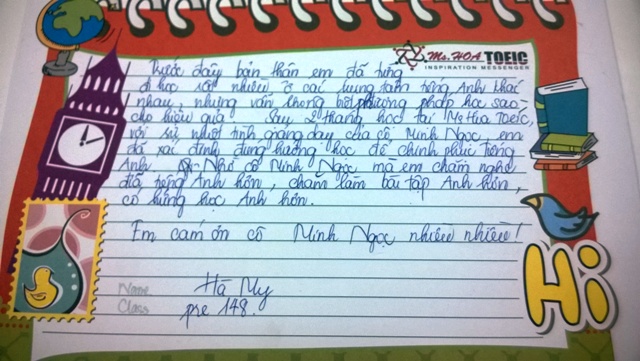 Ms. HOA TOEIC
INSPIRATION MESSENGER
Trước đây bản thân em đã từng
đi học rất nhiều ở các trung tâm tiếng Anh khác
nhau, nhưng vẫn không biết phương pháp học sao
cho hiệu quả. Sau 2 tháng học tại Ms Hoa Toeic,
với sự nhiệt tình giảng dạy của cô Minh Ngọc, em
đã xác định đúng hướng học để chinh phục tiếng
Anh. Nhờ cô Minh Ngọc mà em chăm nghe
đĩa tiếng Anh hơn, chăm làm bài tập Anh hơn,
có hứng học Anh hơn.
Em cảm ơn cô Minh Ngọc nhiều nhiều!
Name Hà My
Class pre 148.
Hi